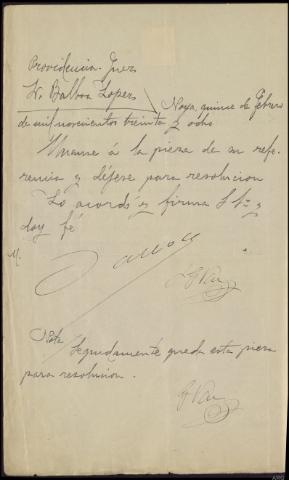 Providencia. Juez
Sr. Balboa Lopez
Noya, quince de Febrero
de mil novecientos treinta y ocho
Unanse á la pieza de su refe-
rencia y déjese para resolucion
Lo acordó y firma S Sª y
doy fé
M.
Balboa
Nota
Seguidamente queda esta pieza
para resolucion.